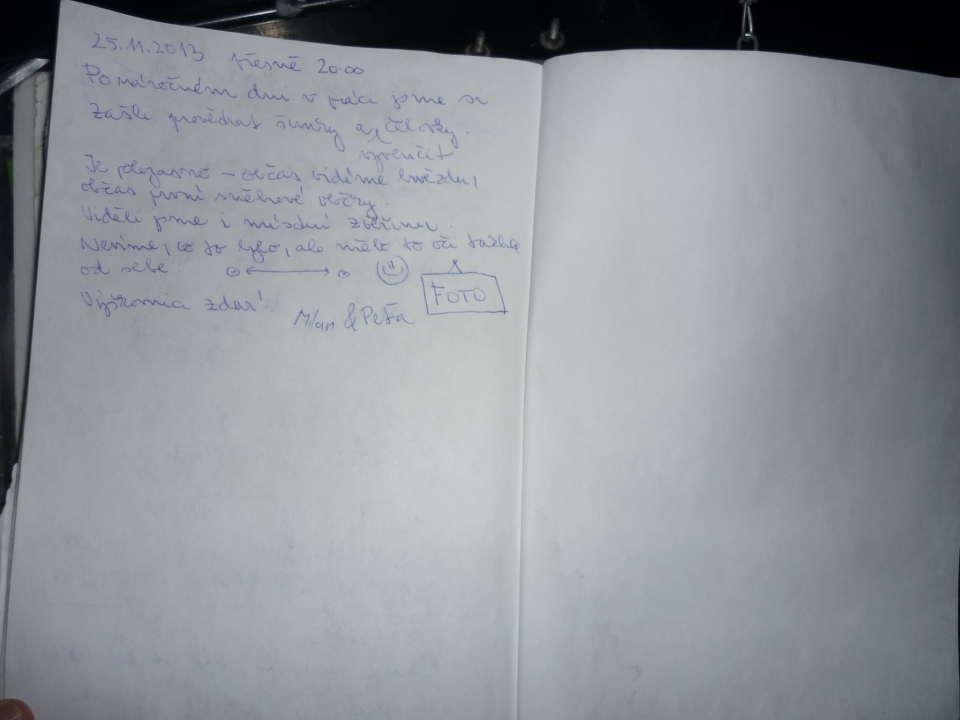 25.11.2013 přesně 20:00
Po náročném dni v práci jsme si
zašli provětrat šunky a čelovky.
vyvenčit
Je polojasno – občas vidíme hvězdu,
občas první sněhové vločky.
Viděli jsme i místní zvěřinu.
Nevíme, co to bylo, ale mělo to oči takhle
od sebe
FOTO
Výpravnia zdar!
Milan & Peťa